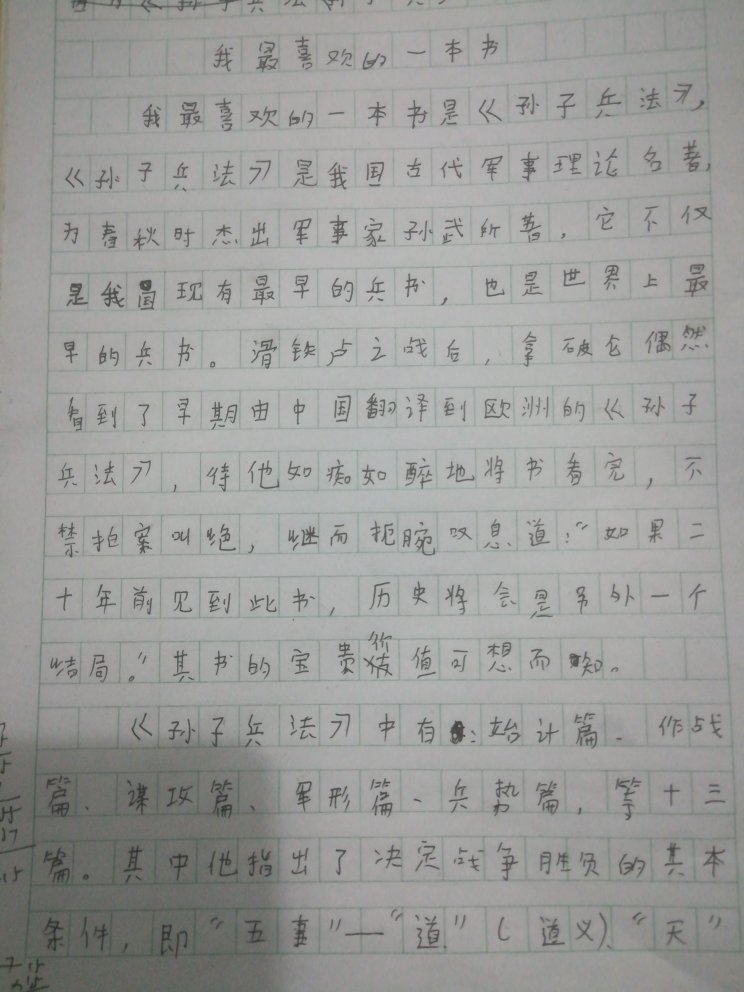 我最喜欢的一本书
我最喜欢的一本书是《孙子兵法》,
《孙子兵法》是我国古代军事理论名著,
为春秋时杰出军事家孙武所著，它不仅
是我国现有最早的兵书，也是世界上最
早的兵书。滑铁卢之战后，拿破仑偶然
看到了早期由中国翻译到欧洲的《孙子
兵法》，待他如痴如醉地将书看完，不
禁拍案叫绝，继而扼腕叹息道：“如果二
十年前见到此书，历史将会是另外一个
结局。”其书的宝贵价值可想而知。
《孙子兵法》中有：始计篇、作战
篇、谋攻篇、军形篇、兵势篇，等十三
篇。其中他指出了决定战争胜负的其本
条件，即“五事”—“道”(道义)、“天”